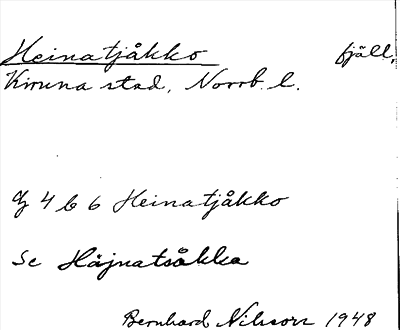 Heinatjåkko fjäll,
Kiruna stad, Norrb. l.
4 b 6 Heinatjåkko
Se Håjnatsåkka
Bernhard Nilsson 1948